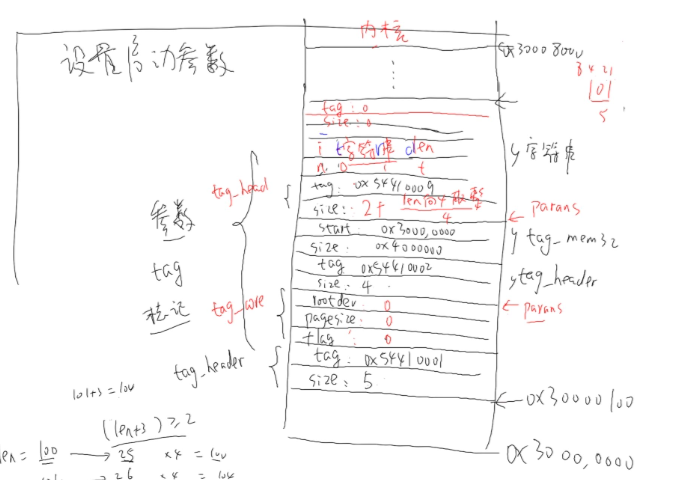 内核
设置启动参数
0x30008000
8 4 2 1
1 0 1
5
tag: 0
size: 0
字符串
i t d len
n 0 1 t
字符串
tag_head
tag: 0x54410009
size: 2+ len向4取整
4
params
参数
start 0x3000,0000
size: 0x4000000
tag_mem32
tag
tag 0x54410002
size: 4
tag_header
标记
tag_core
rootdev: 0
params
pagesize: 0
flag: 0
tag_header
tag: 0x54410001
size: 5
101+3=104
0x30000100
(len+3) ≥ 2
len = 100 → 25 ×4 = 100
→ 26 ×4 = 104
0x3000,0000